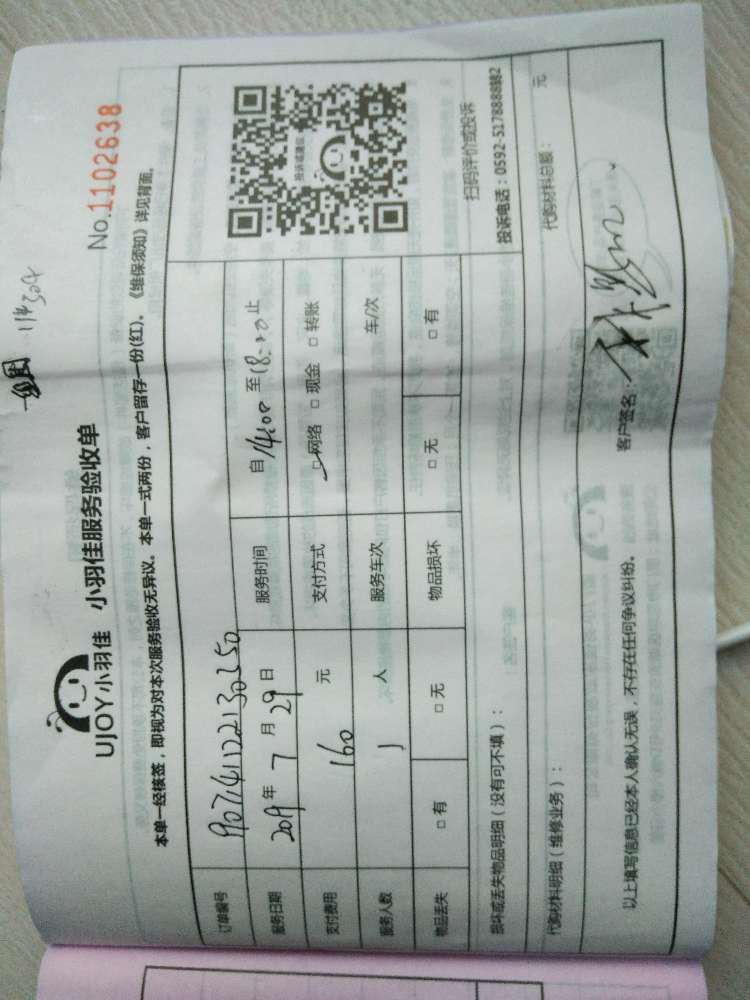 No.1102638
UJOY小羽佳 小羽佳服务验收单
本单一经核签，即视为对本次服务验收无异议。本单一式两份，客户留存一份(红)。《维保须知》详见背面。
订单编号
服务日期 2019年 7 月 29 日 服务时间 自 14:00 至 18:00 止
支付费用 160 元 支付方式 □网络 □现金 □转账
服务人数 1 人 服务车次 车/次
物品丢失 □有 □无 物品损坏 □无 □有
投诉或建议
扫码评价或投诉
投诉电话：0592-5178888转2
损坏或丢失物品明细（没有可不填）：
代购材料明细（维修业务）： 代购材料总额： 元
以上填写信息已经本人确认无误，不存在任何争议纠纷。 客户签名：